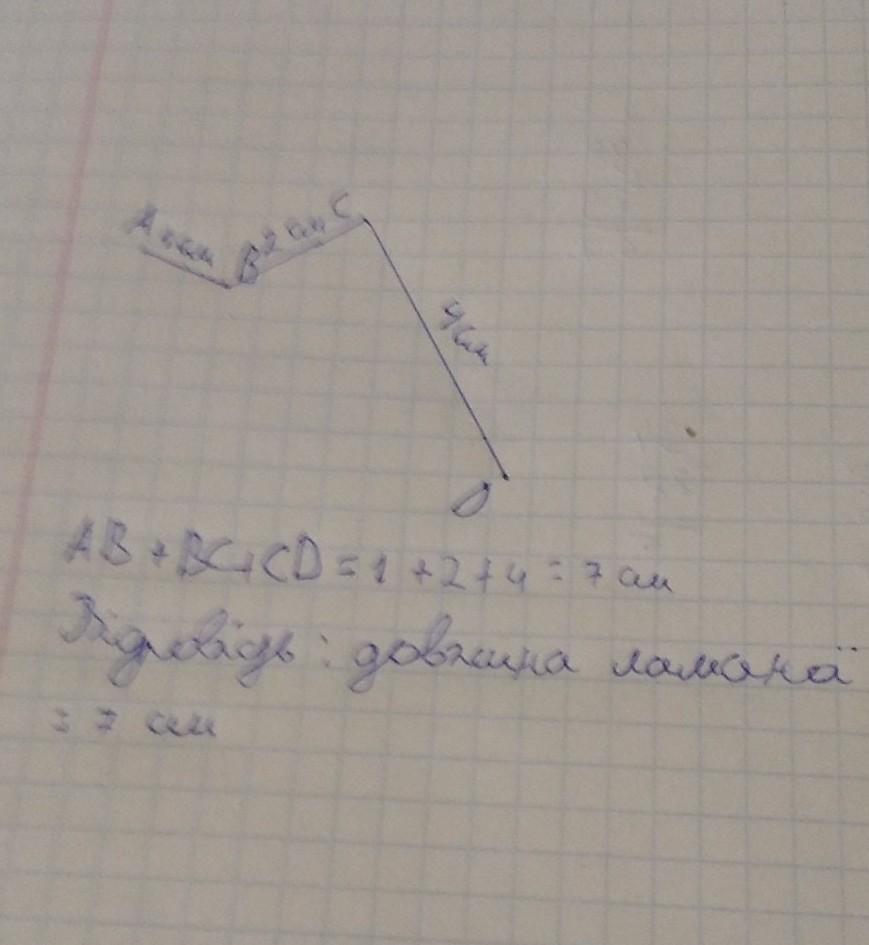 A 1 см B 2 см C
4 см
D
AB + BC + CD = 1 + 2 + 4 = 7 см
Відповідь : довжина ламаної
= 7 см